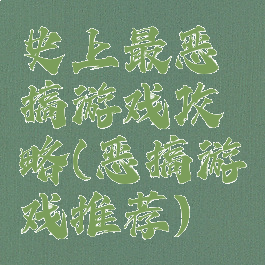 史上最恶
搞游戏攻
略(恶搞游
戏推荐)